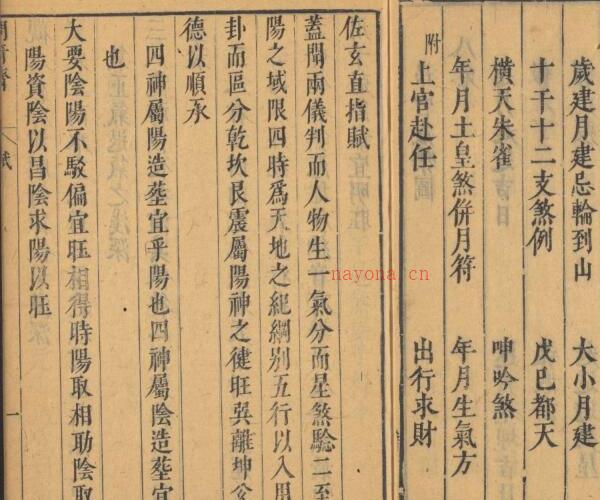 歲建月建忌輪到山　大小月建
十干十二支煞例　戊巳都天
橫天朱雀　呻吟煞
年月土皇煞併月符　年月生氣方
附
上官赴任　出行求財
佐玄直指賦
蓋聞兩儀判而人物生一氣分而星煞驗二至
陽之域限四時爲天地之紀綱别五行以入用
卦而區分乾坎艮震屬陽神之健旺巽離坤兊
德以順承
四神屬陽造塟宜乎陽也四神屬陰造塟宜
也
大要陰陽不駁偏宜旺相得時陽取相助陰取
陽資陰以昌陰求陽以旺
賦
一
nayona.cn